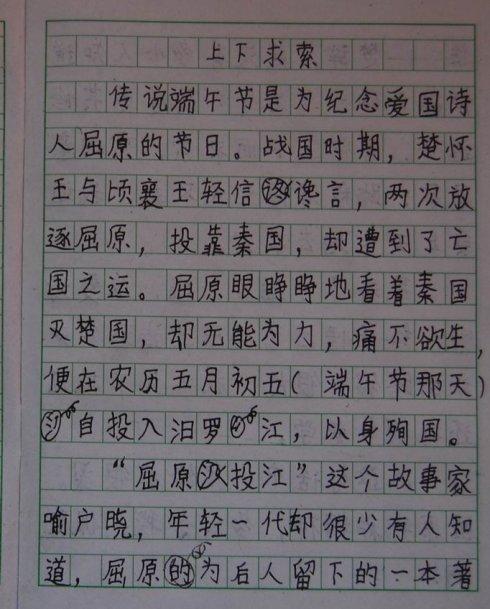 上下求索
传说端午节是为纪念爱国诗
人屈原的节日。战国时期，楚怀
王与顷襄王轻信谗言，两次放
逐屈原，投靠秦国，却遭到了亡
国之运。屈原眼睁睁地看着秦国
灭楚国，却无能为力，痛不欲生，
便在农历五月初五（端午节那天）
自投入汨罗江，以身殉国。
“屈原投江”这个故事家
喻户晓，年轻一代却很少有人知
道，屈原为后人留下的一本著